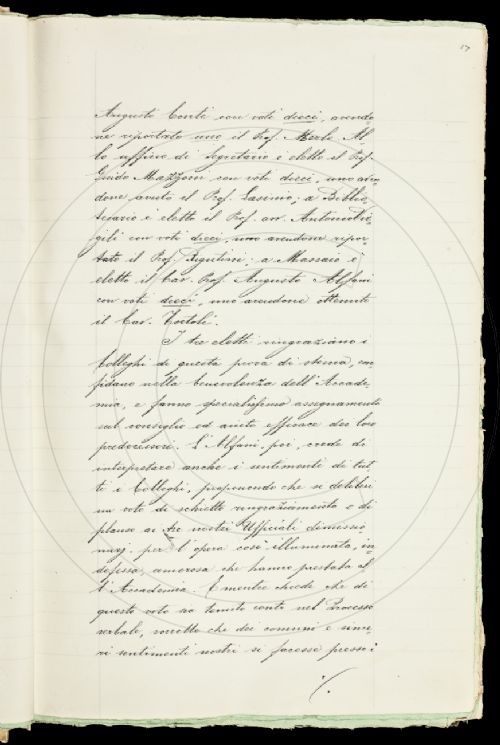 17
Augusto Conti con voti dieci, avendo
ne riportato uno il Prof. Merlo. Al-
lo uffizio di Segretario è eletto il Prof.
Guido Mazzoni con voti dieci, uno aven-
done avuto il Prof. Lasinio, a Biblio-
tecario è eletto il Prof. cav. Antonvir-
gili con voti dieci, uno avendone ripor-
tato il Prof. Rigutini; a Massaio è
eletto il Cav. Prof. Augusto Alfani
con voti dieci, uno avendone ottenuto
il Cav. Tortoli.
I tre eletti ringraziano i
Colleghi di questa prova di stima, con-
fidano nella benevolenza dell'Accade-
mia, e fanno specialissimo assegnamento
sul consiglio ed aiuto efficace dei loro
predecessori. L'Alfani, poi, crede di
interpretare anche i sentimenti di tut-
ti i Colleghi, proponendo che si deliberi
un voto di schietto ringraziamento e di
plauso ai tre nostri Ufficiali dimissio-
narj per l'opera così illuminata, in-
defessa, amorosa che hanno prestata al-
l'Accademia. E mentre chiede che di
questo voto sia tenuto conto nel Processo
verbale, vorrebbe che dei comuni e since-
ri sentimenti nostri si facesse presso i
./.